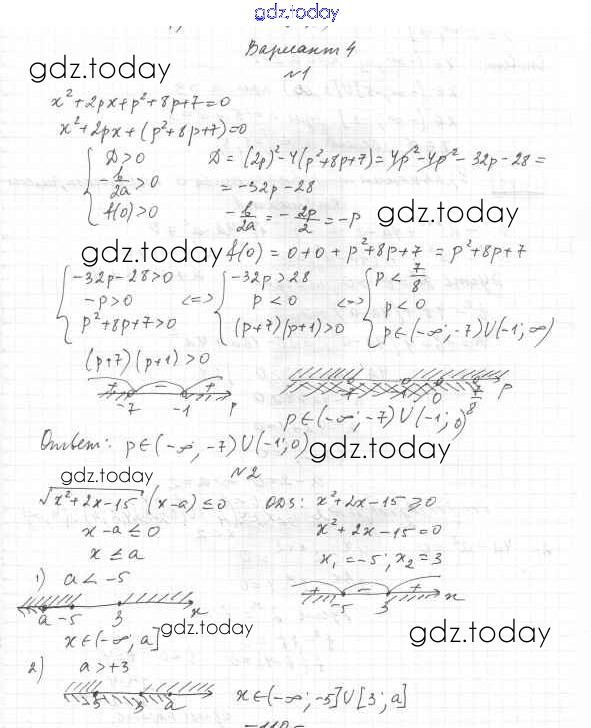 gdz.today
Вариант 4
№1
gdz.today
x²+2px+p²+8p+7=0
x²+2px+(p²+8p+7)=0
{ D>0
-b/2a>0
f(0)>0
D = (2p)²-4(p²+8p+7)=4p²-4p²-32p-28=
= -32p-28
-b/2a = -2p/2 = -p
gdz.today
gdz.today
f(0) = 0+0+p²+8p+7 = p²+8p+7
{ -32p-28>0
-p>0
p²+8p+7>0
<=> { -32p>28
p<0
(p+7)(p+1)>0
<=> { p < 7/8
p<0
p∈(-∞;-7)∪(-1;∞)
(p+7)(p+1)>0
+ - +
-7 -1 p
-7 -1 0 7/8 p
p∈(-∞;-7)∪(-1;0)
Ответ: p∈(-∞,-7)∪(-1;0)
gdz.today
№2
gdz.today
√x²+2x-15 (x-a)≤0
ODS: x²+2x-15⩾0
x-a≤0
x²+2x-15=0
x≤a
x₁=-5; x₂=3
1) a<-5
+ - +
-5 3 x
a -5 3 x
x∈(-∞;a]
gdz.today
gdz.today
2) a>+3
-5 3 a
x∈(-∞;-5]∪[3;a]